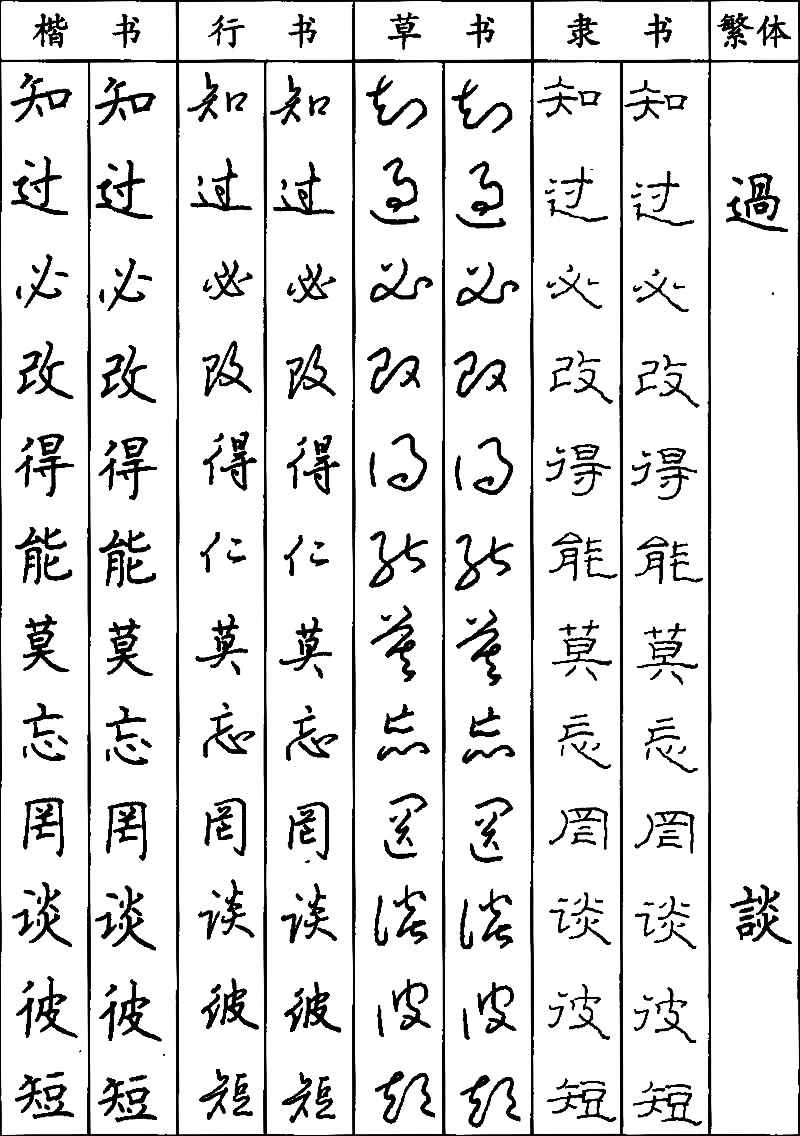 楷书 行书 草书 隶书 繁体
知 知 知 知 知 知 知 知
过 过 过 过 过 过 过 过 過
必 必 必 必 必 必 必 必
改 改 改 改 改 改 改 改
得 得 得 得 得 得 得 得
能 能 仁 仁 能 能 能 能
莫 莫 莫 莫 莫 莫 莫 莫
忘 忘 忘 忘 忘 忘 忘 忘
罔 罔 罔 罔 罔 罔 罔 罔
谈 谈 谈 谈 谈 谈 谈 谈 談
彼 彼 彼 彼 彼 彼 彼 彼
短 短 短 短 短 短 短 短